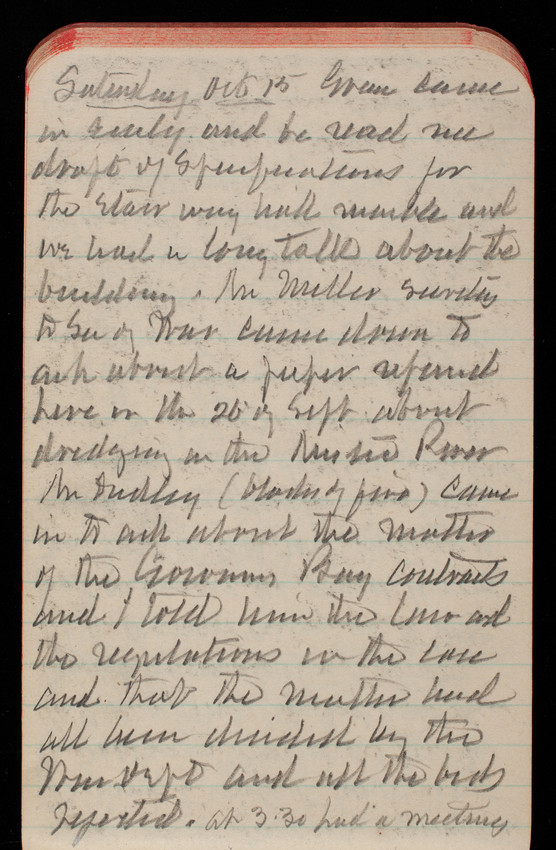 Saturday Oct 15 Green came
in early and he read me
draft of Specifications for
the Stair way hall marble and
we had a long talk about the
building. Mr Miller Secretary
to Sec of War came down to
ask about a paper referred
here on the 20 of Sept about
dredging in the River
Mr Dudley (blocks of five) came
in to ask about the matter
of the Gowanus Bay contracts
and I told him the law and
the regulations in the case
and that the matter had
all been decided by the
War Dept and all the bids
rejected. at 3.30 had a meeting